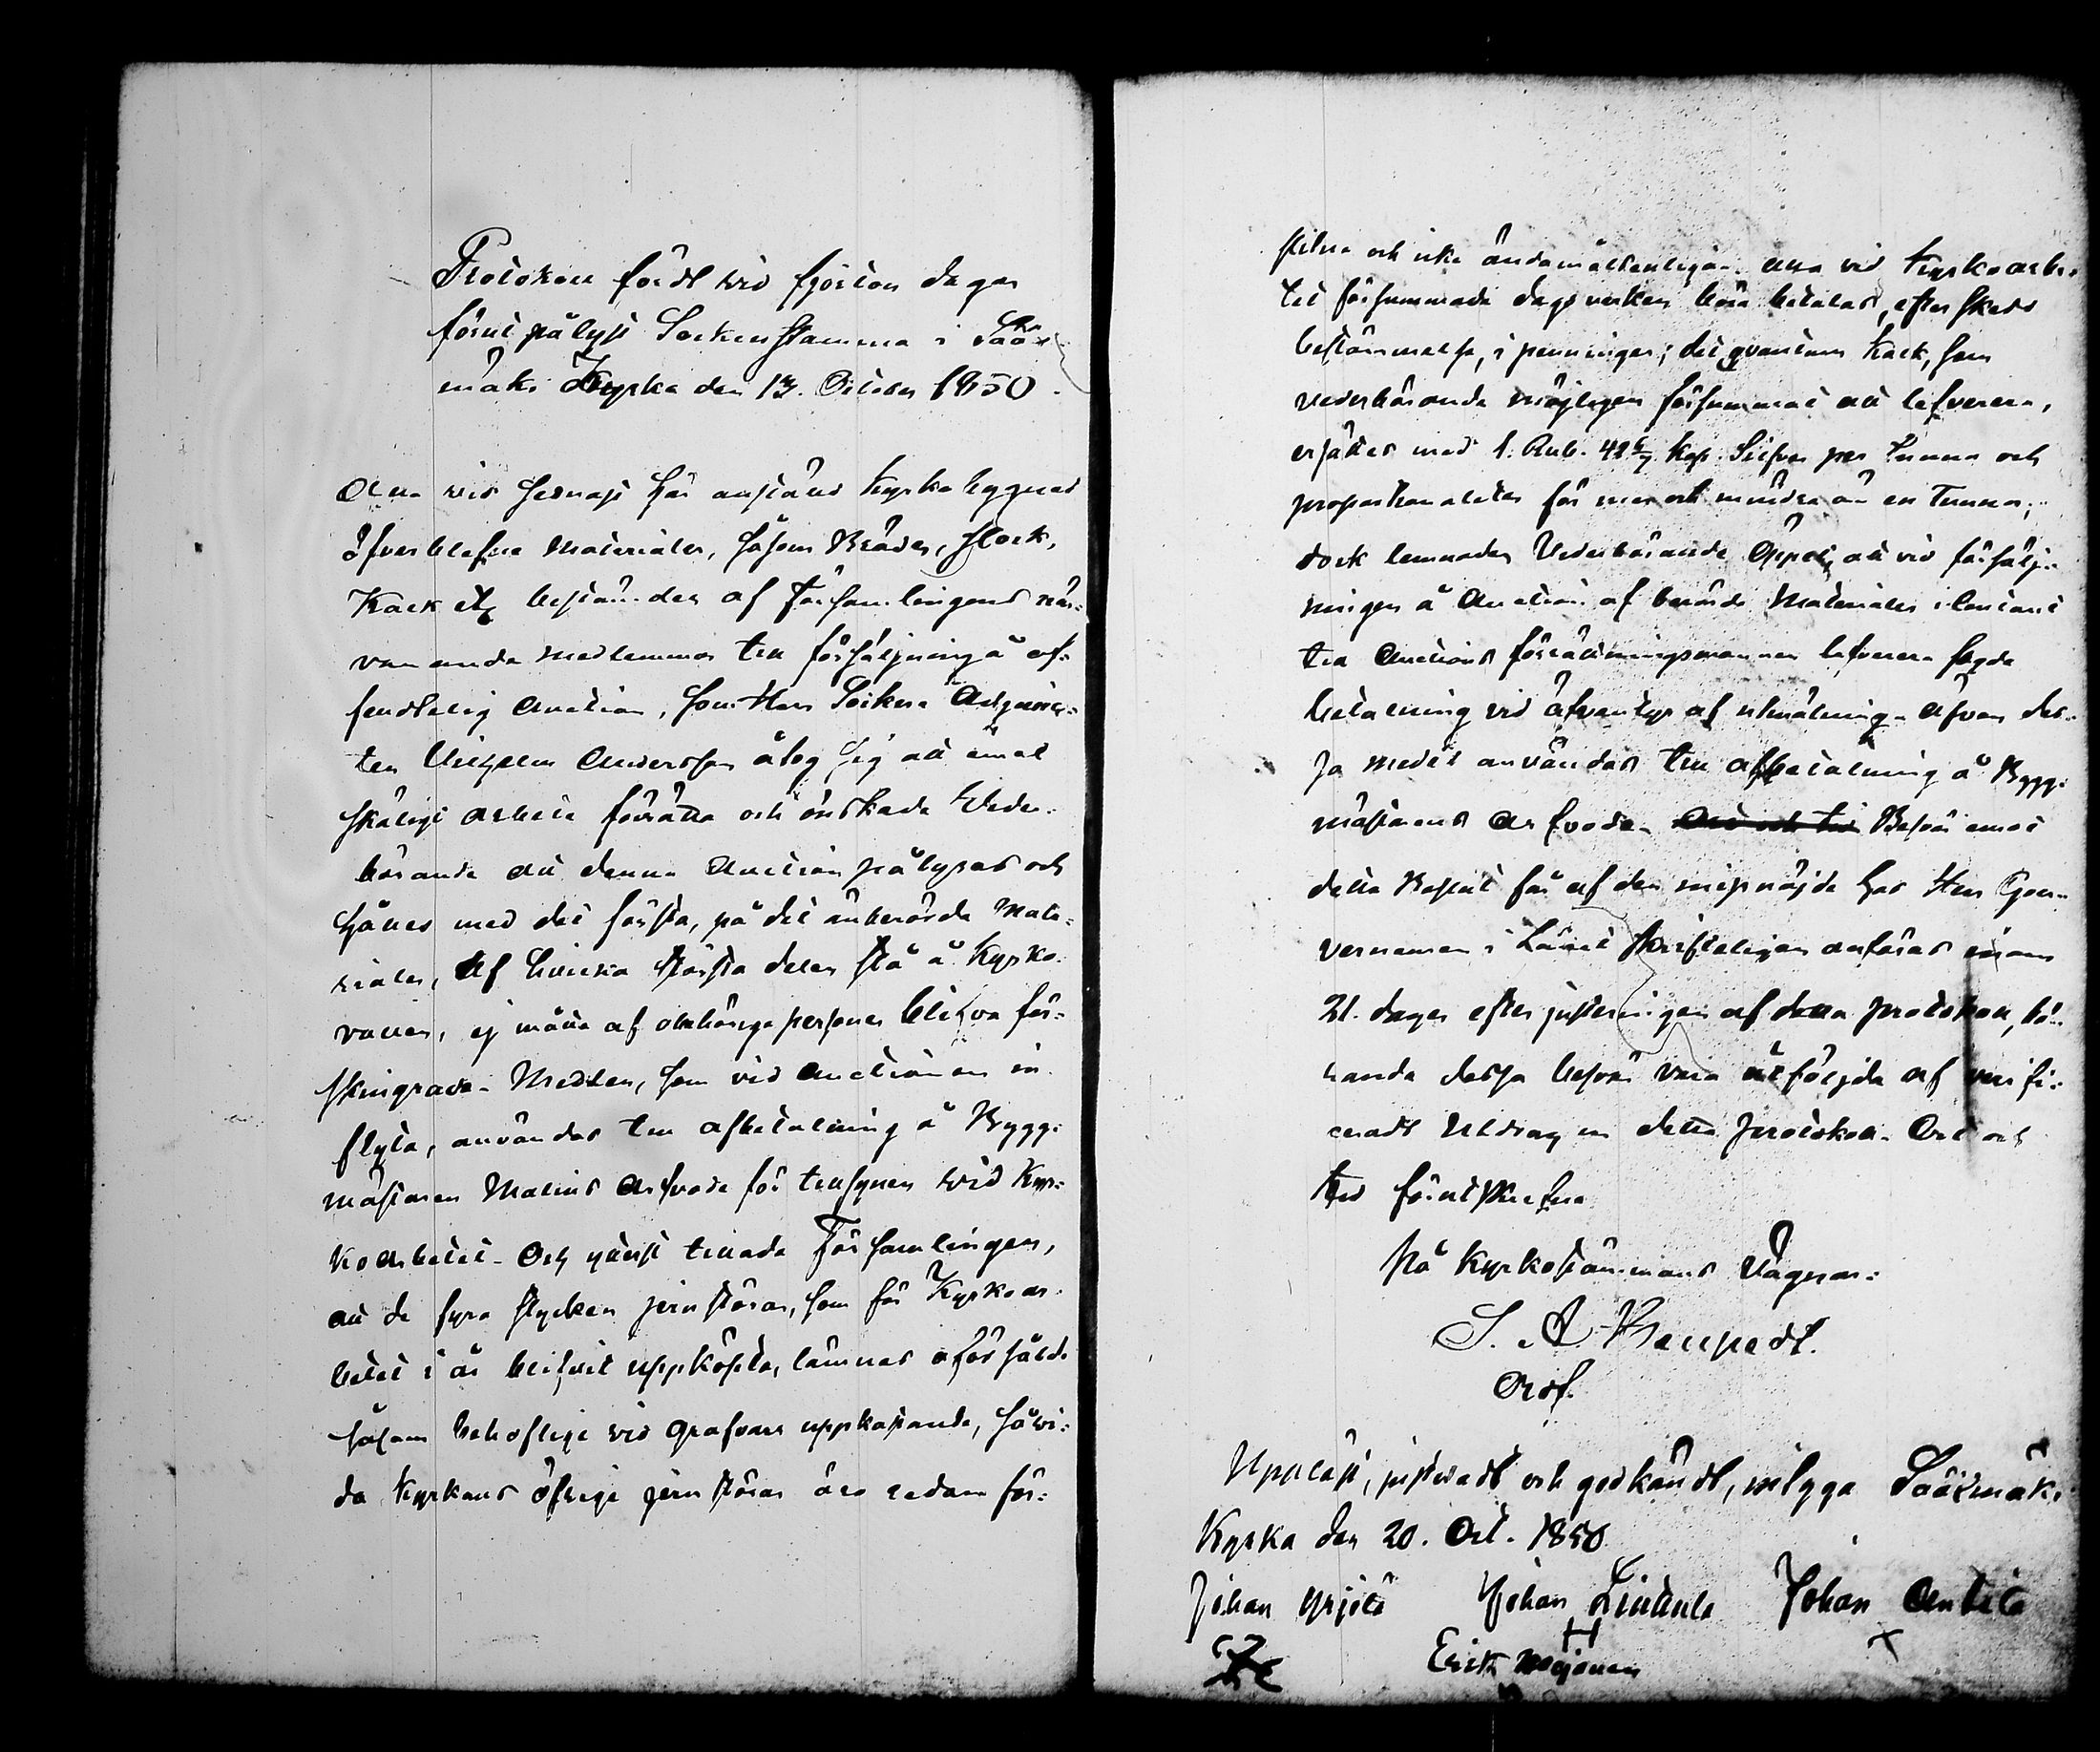 Protokoll fördt wid fjorton dagar
förut pålyst Sockenstämma i Sääx-
mäki Kyrka den 13. October 1850.
Alla wid sednast här anstäld Kyrko byggnad
öfverblefne Materialer, såsom Bräder, stock,
Kalk etc bestämdes af Församlingens när-
varande medlemmar till försäljning å of-
fendtelig Auction, som Herr Sockne Adjunc-
ten Vilhelm Andersson åtog sig att emot
skäligt arbete förrätta och önskade Veder-
börande att denna Auction pålyses och
hålles med det första, på det anberörda Mate-
rialer, af hvilka största delen stå å Kyrko-
vallen, ej måtte af obehöriga personer blifva för-
skingrade. Medlen, som vid Auctionen in-
flyta, användas till afbetalning å Bygg-
mästaren Malins Arfvode för tillsynen wid Kyr-
koarbetet. Och yttrade Församlingen,
att de fyra stycken jernstörar, som för Kyrkoar-
betet i år blifvit uppköpta, lämnas oförsålde
såsom behoflige vid grafvars uppkastande, såvi-
da Kyrkans öfrige jernstörar äro redan för-
slitne och icke ändamålsenlige. Alla vid Kyrkoarbe-
tet försummade dagsverken böra betalas, efter skedd
bestämmelse, i penningar; det qvantum Kalk, som
vederbörande möjligen försummat att lefverera,
ersättes med 1. Rub. 42 6/7 Kop. Silfver per tunna och
proportionaliter för mer och mindre än en Tunna;
dock lemnades Vederbörande öppet, att vid försälj-
ningen å Auction af berörde Materialer contant
till Auctions förrättningsmannen lefverera sagde
betalning vid äfventyr af utmätning. Äfven des-
sa medel användas till afbetalning å Bygg-
mästarens Arfvode. Besvär emot
detta Beslut får af den missnöjde hos Herr Gou-
verneuren i Länet skrifteligen anföras inom
21. dagar efter justeringen af detta protokoll, bö-
rande dessa besvär vara åtföljda af verifi-
ceradt Utdrag ur detta Protokoll. Ort och
tid förutskrefne
På Kyrkostämmans Vägnar:
S. A.
Ordf.
Uppläst, justeradt och godkändt, intyga Sääxmäki
Kyrka den 20. Oct. 1850.
Johan Yrjölä Johan Liuttula Johan Anttila
Erik